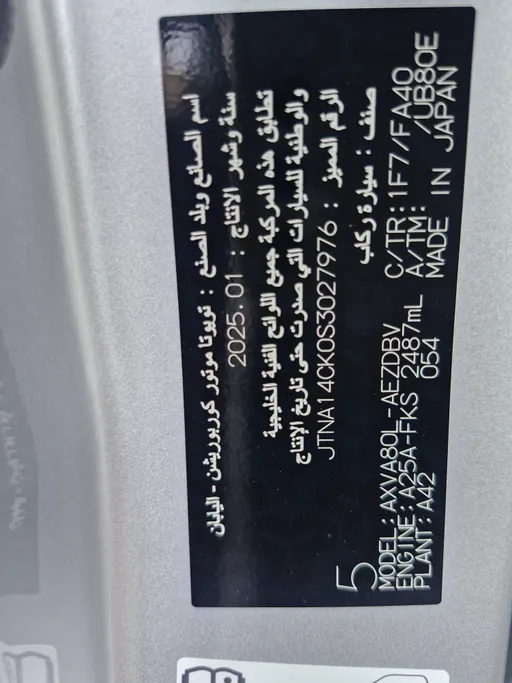 اسم الصانع وبلد الصنع : تويوتا موتور كوربوريشن - اليابان
سنة وشهر الانتاج : 2025.01
تطابق هذه المركبة جميع اللوائح الفنية الخليجية
والوطنية للسيارات التي صدرت حتى تاريخ الإنتاج
الرقم المميز : JTNA14CK0S3027976
صنف : سيارة ركاب
5
MODEL: AXVA80L-AEZDBV C/TR: 1F7/FA40
ENGINE: A25A-FKS 2487mL A/TM: /UB80E
PLANT: A42 054 MADE IN JAPAN